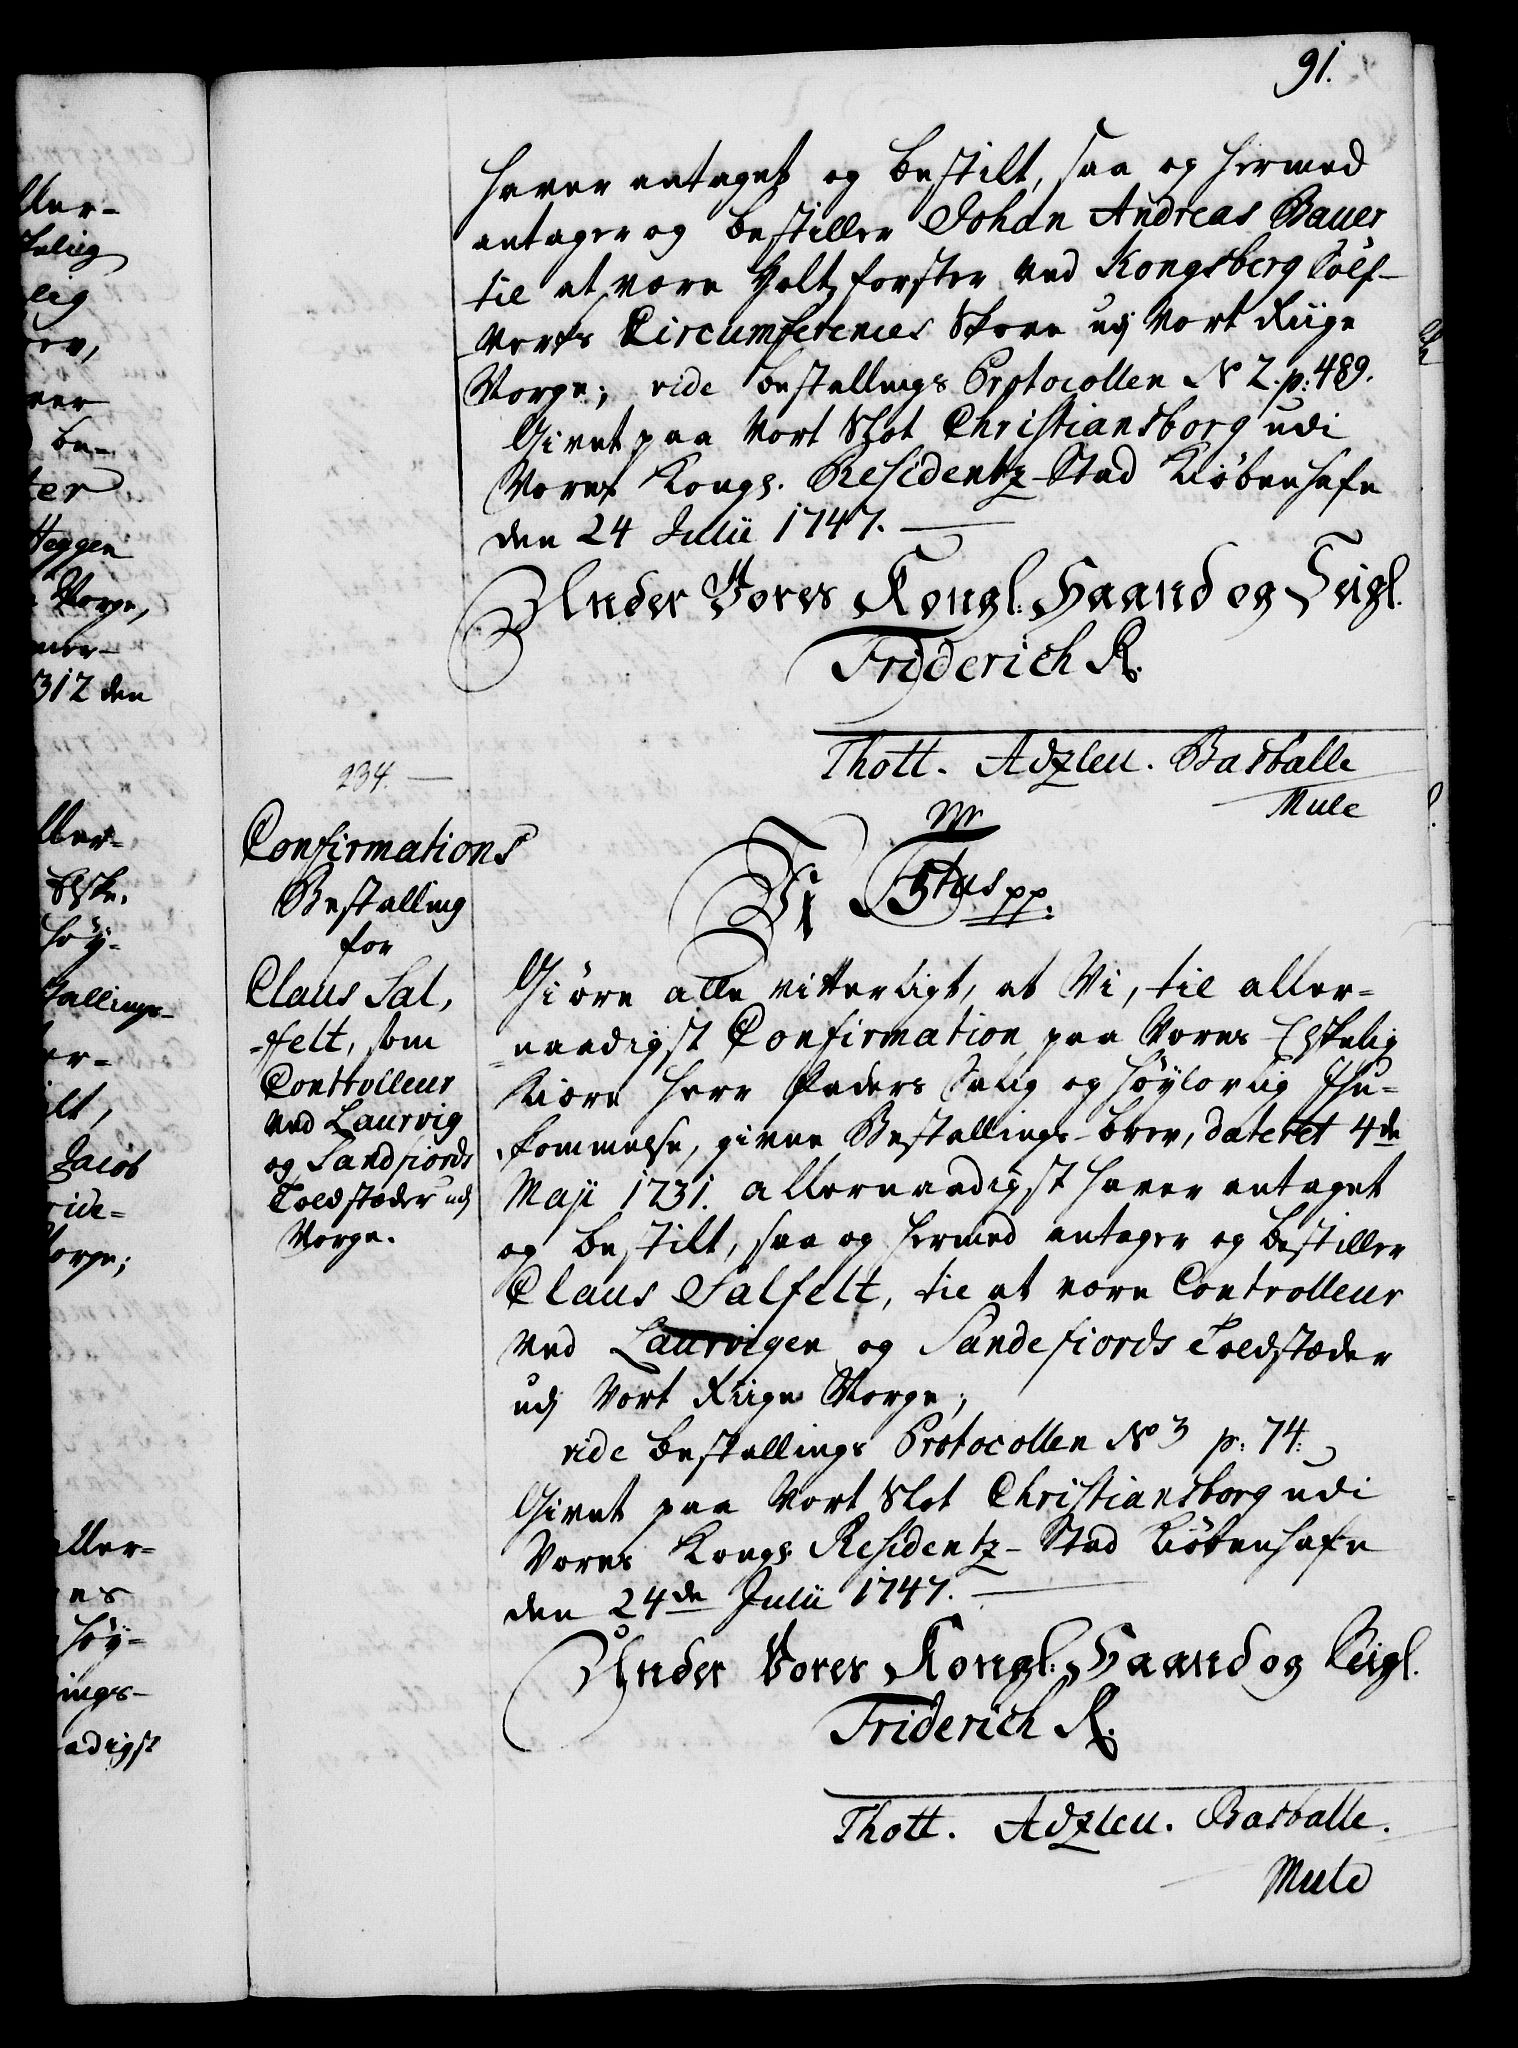 91.
haver antaget og bestilt, saa og hermed
antager og bestiller Johan Andreas Bauer
til at være Holtzforster ved Kongsberg Sölf-
Verks Circumferences Skove udj Vort Riige
Norge; vide bestallings Protocollen No 2. p: 489.
Givet paa Vort Slot Christiansborg udi
Vores Kongl. Residentz-Stad Kiöbenhafn
den 24 Julii 1747.
Under Vores Kongl: Haand og Seigl.
Friderich R.
Thott. Adzleu. Basballe
Mule
234.
Confirmations
Bestalling
for
Claus Sal,
-felt, som
Controlleur
ved Laurvig
og Sandfiords
Toldstæder udj
Norge.
Vi Fr 5tus pp:
Giöre alle vitterligt, at Vi, til aller=
=naadigst Confirmation paa Vores Elskelig
kiære Herr Faders Salig og höylovlig Ihu-
kommelse, givne Bestallings-brev, dateret 4de
Maji 1731. allernaadigst haver antaget
og bestilt, saa og hermed antager og bestiller
Claus Salfelt, til at være Controlleur
ved Laurvigen og Sandefiords Toldstæder
udj Vort Riige Norge,
vide bestallings Protocollen No 3 p: 74:
Givet paa Vort Slot Christiansborg udi
Vores Kongl Residentz-Stad Kiöbenhafn
den 24de Julii 1747.
Under Vores Kongl: Haand og Seigl.
Friderich R.
Thott. Adzleu. Basballe.
Mule